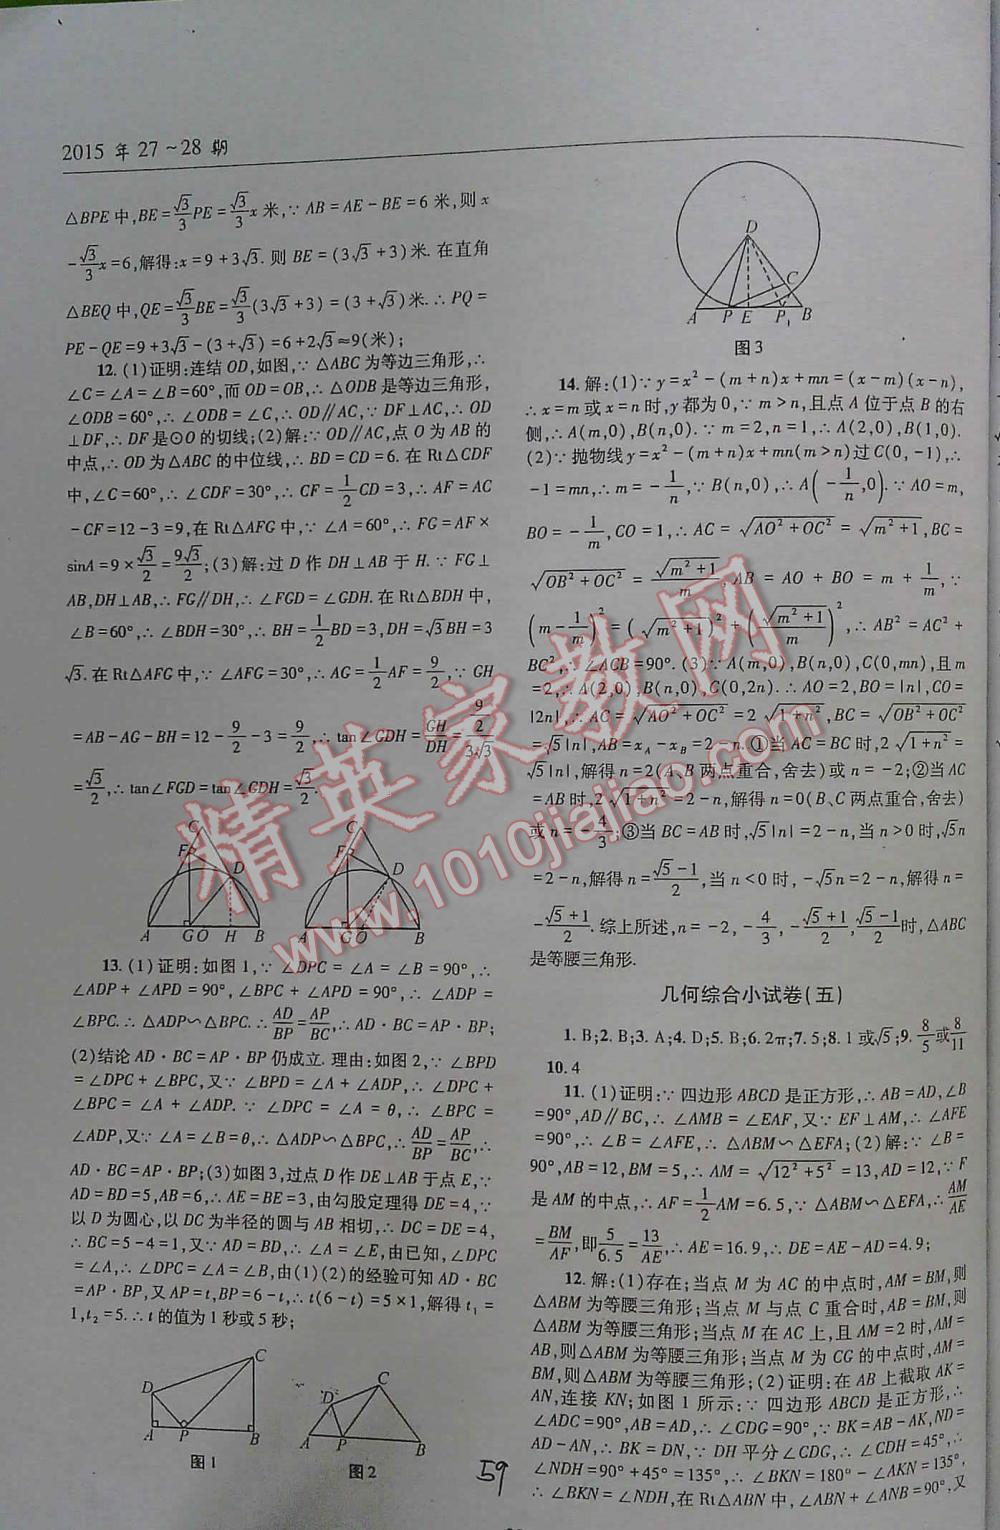 2015 年 27～28 期
△BPE 中,BE=√3/3 PE=√3/3 x 米,∵ AB=AE－BE=6 米,则 x
－√3/3 x=6,解得:x=9+3√3. 则 BE=(3√3+3)米. 在直角
△BEQ 中,QE=√3/3 BE=√3/3(3√3+3)=(3+√3)米.∴ PQ=
PE－QE=9+3√3－(3+√3)=6+2√3≈9(米);
12. (1)证明:连结 OD,如图,∵ △ABC 为等边三角形,∴
∠C=∠A=∠B=60°,而 OD=OB,∴ △ODB 是等边三角形,
∠ODB=60°,∴ ∠ODB=∠C,∴ OD∥AC,∵ DF⊥AC,∴ OD
⊥DF,∴ DF 是⊙O 的切线;(2)解:∵ OD∥AC,点 O 为 AB 的
中点,∴ OD 为△ABC 的中位线,∴ BD=CD=6. 在 Rt△CDF
中,∠C=60°,∴ ∠CDF=30°,∴ CF=1/2 CD=3,∴ AF=AC
－CF=12－3=9,在 Rt△AFG 中,∵ ∠A=60°,∴ FG=AF×
sinA=9×√3/2=9√3/2;(3)解:过 D 作 DH⊥AB 于 H.∵ FG⊥
AB,DH⊥AB,∴ FG∥DH,∴ ∠FGD=∠GDH. 在 Rt△BDH 中,
∠B=60°,∴ ∠BDH=30°,∴ BH=1/2 BD=3,DH=√3BH=3
√3. 在 Rt△AFG 中,∵ ∠AFG=30°,∴ AG=1/2 AF=9/2,∵ GH
=AB－AG－BH=12－9/2－3=9/2,∴ tan∠GDH=GH/DH=(9/2)/(3√3)
=√3/2,∴ tan∠FGD=tan∠GDH=√3/2.
C
F
D
A G O H B
C
F
D
A G O B
13. (1)证明:如图 1,∵ ∠DPC=∠A=∠B=90°,∴
∠ADP+∠APD=90°,∠BPC+∠APD=90°,∴ ∠ADP=
∠BPC.∴ △ADP∽△BPC.∴ AD/BP=AP/BC,∴ AD·BC=AP·BP;
(2)结论 AD·BC=AP·BP 仍成立. 理由:如图 2,∵ ∠BPD
=∠DPC+∠BPC,又∵ ∠BPD=∠A+∠ADP,∴ ∠DPC+
∠BPC=∠A+∠ADP.∵ ∠DPC=∠A=θ,∴ ∠BPC=
∠ADP,又∵ ∠A=∠B=θ,∴ △ADP∽△BPC,∴ AD/BP=AP/BC,∴
AD·BC=AP·BP;(3)如图 3,过点 D 作 DE⊥AB 于点 E,∵
AD=BD=5,AB=6,∴ AE=BE=3,由勾股定理得 DE=4,∵
以 D 为圆心,以 DC 为半径的圆与 AB 相切,∴ DC=DE=4,
∴ BC=5－4=1,又∵ AD=BD,∴ ∠A=∠E,由已知,∠DPC
=∠A,∴ ∠DPC=∠A=∠B,由(1)(2)的经验可知 AD·BC
=AP·BP,又 AP=t,BP=6－t,∴ t(6－t)=5×1,解得 t₁=
1,t₂=5.∴ t 的值为 1 秒或 5 秒;
D C
A P B
图 1
D C
A P B
图 2
D
C
A P E P₁ B
图 3
14. 解:(1)∵ y=x²－(m+n)x+mn=(x－m)(x－n),
∴ x=m 或 x=n 时,y 都为 0,∵ m>n,且点 A 位于点 B 的右
侧,∴ A(m,0),B(n,0).∵ m=2,n=1,∴ A(2,0),B(1,0).
(2)∵ 抛物线 y=x²－(m+n)x+mn(m>n)过 C(0,－1),∴
－1=mn,∴ m=－1/n,∵ B(n,0),∴ A(－1/n,0).∵ AO=m,
BO=－1/m,CO=1,∴ AC=√(AO²+OC²)=√(m²+1),BC=
√(OB²+OC²)=√(m²+1)/m,AB=AO+BO=m+1/m,∵
(m－1/m)²=(√(m²+1))²+(√(m²+1)/m)²,∴ AB²=AC²+
BC²,∴ ∠ACB=90°. (3)∵ A(m,0),B(n,0),C(0,mn),且 m
=2,∴ A(2,0),B(n,0),C(0,2n).∴ AO=2,BO=|n|,CO=
|2n|,∴ AC=√(AO²+OC²)=2√(1+n²),BC=√(OB²+OC²)
=√5|n|,AB=x_A－x_B=2－n. ①当 AC=BC 时,2√(1+n²)=
√5|n|,解得 n=2(A、B 两点重合,舍去)或 n=－2;②当 AC
=AB 时,2√(1+n²)=2－n,解得 n=0(B、C 两点重合,舍去)
或 n=－4/3;③当 BC=AB 时,√5|n|=2－n,当 n>0 时,√5n
=2－n,解得 n=(√5－1)/2,当 n<0 时,－√5n=2－n,解得 n=
－(√5+1)/2. 综上所述,n=－2,－4/3,－(√5+1)/2,(√5－1)/2时,△ABC
是等腰三角形.
几何综合小试卷(五)
1. B;2. B;3. A;4. D;5. B;6. 2π;7. 5;8. 1 或√5;9. 8/5或8/11
10. 4
11. (1)证明:∵ 四边形 ABCD 是正方形,∴ AB=AD,∠B
=90°,AD∥BC,∴ ∠AMB=∠EAF,又∵ EF⊥AM,∴ ∠AFE
=90°,∴ ∠B=∠AFE,∴ △ABM∽△EFA;(2)解:∵ ∠B=
90°,AB=12,BM=5,∴ AM=√(12²+5²)=13,AD=12,∵ F
是 AM 的中点,∴ AF=1/2 AM=6.5,∵ △ABM∽△EFA,∴ AM/AE
=BM/AF,即5/6.5=13/AE,∴ AE=16.9,∴ DE=AE－AD=4.9;
12. 解:(1)存在;当点 M 为 AC 的中点时,AM=BM,则
△ABM 为等腰三角形;当点 M 与点 C 重合时,AB=BM,则
△ABM 为等腰三角形;当点 M 在 AC 上,且 AM=2 时,AM=
AB,则△ABM 为等腰三角形;当点 M 为 CG 的中点时,AM=
BM,则△ABM 为等腰三角形;(2)证明:在 AB 上截取 AK=
AN,连接 KN;如图 1 所示:∵ 四边形 ABCD 是正方形,∴
∠ADC=90°,AB=AD,∴ ∠CDG=90°,∵ BK=AB－AK,ND=
AD－AN,∴ BK=DN,∵ DH 平分∠CDG,∴ ∠CDH=45°,∴
∠NDH=90°+45°=135°,∴ ∠BKN=180°－∠AKN=135°,
∴ ∠BKN=∠NDH,在 Rt△ABN 中,∠ABN+∠ANB=90°,又
59
精英家教网
www.1010jiajiao.com